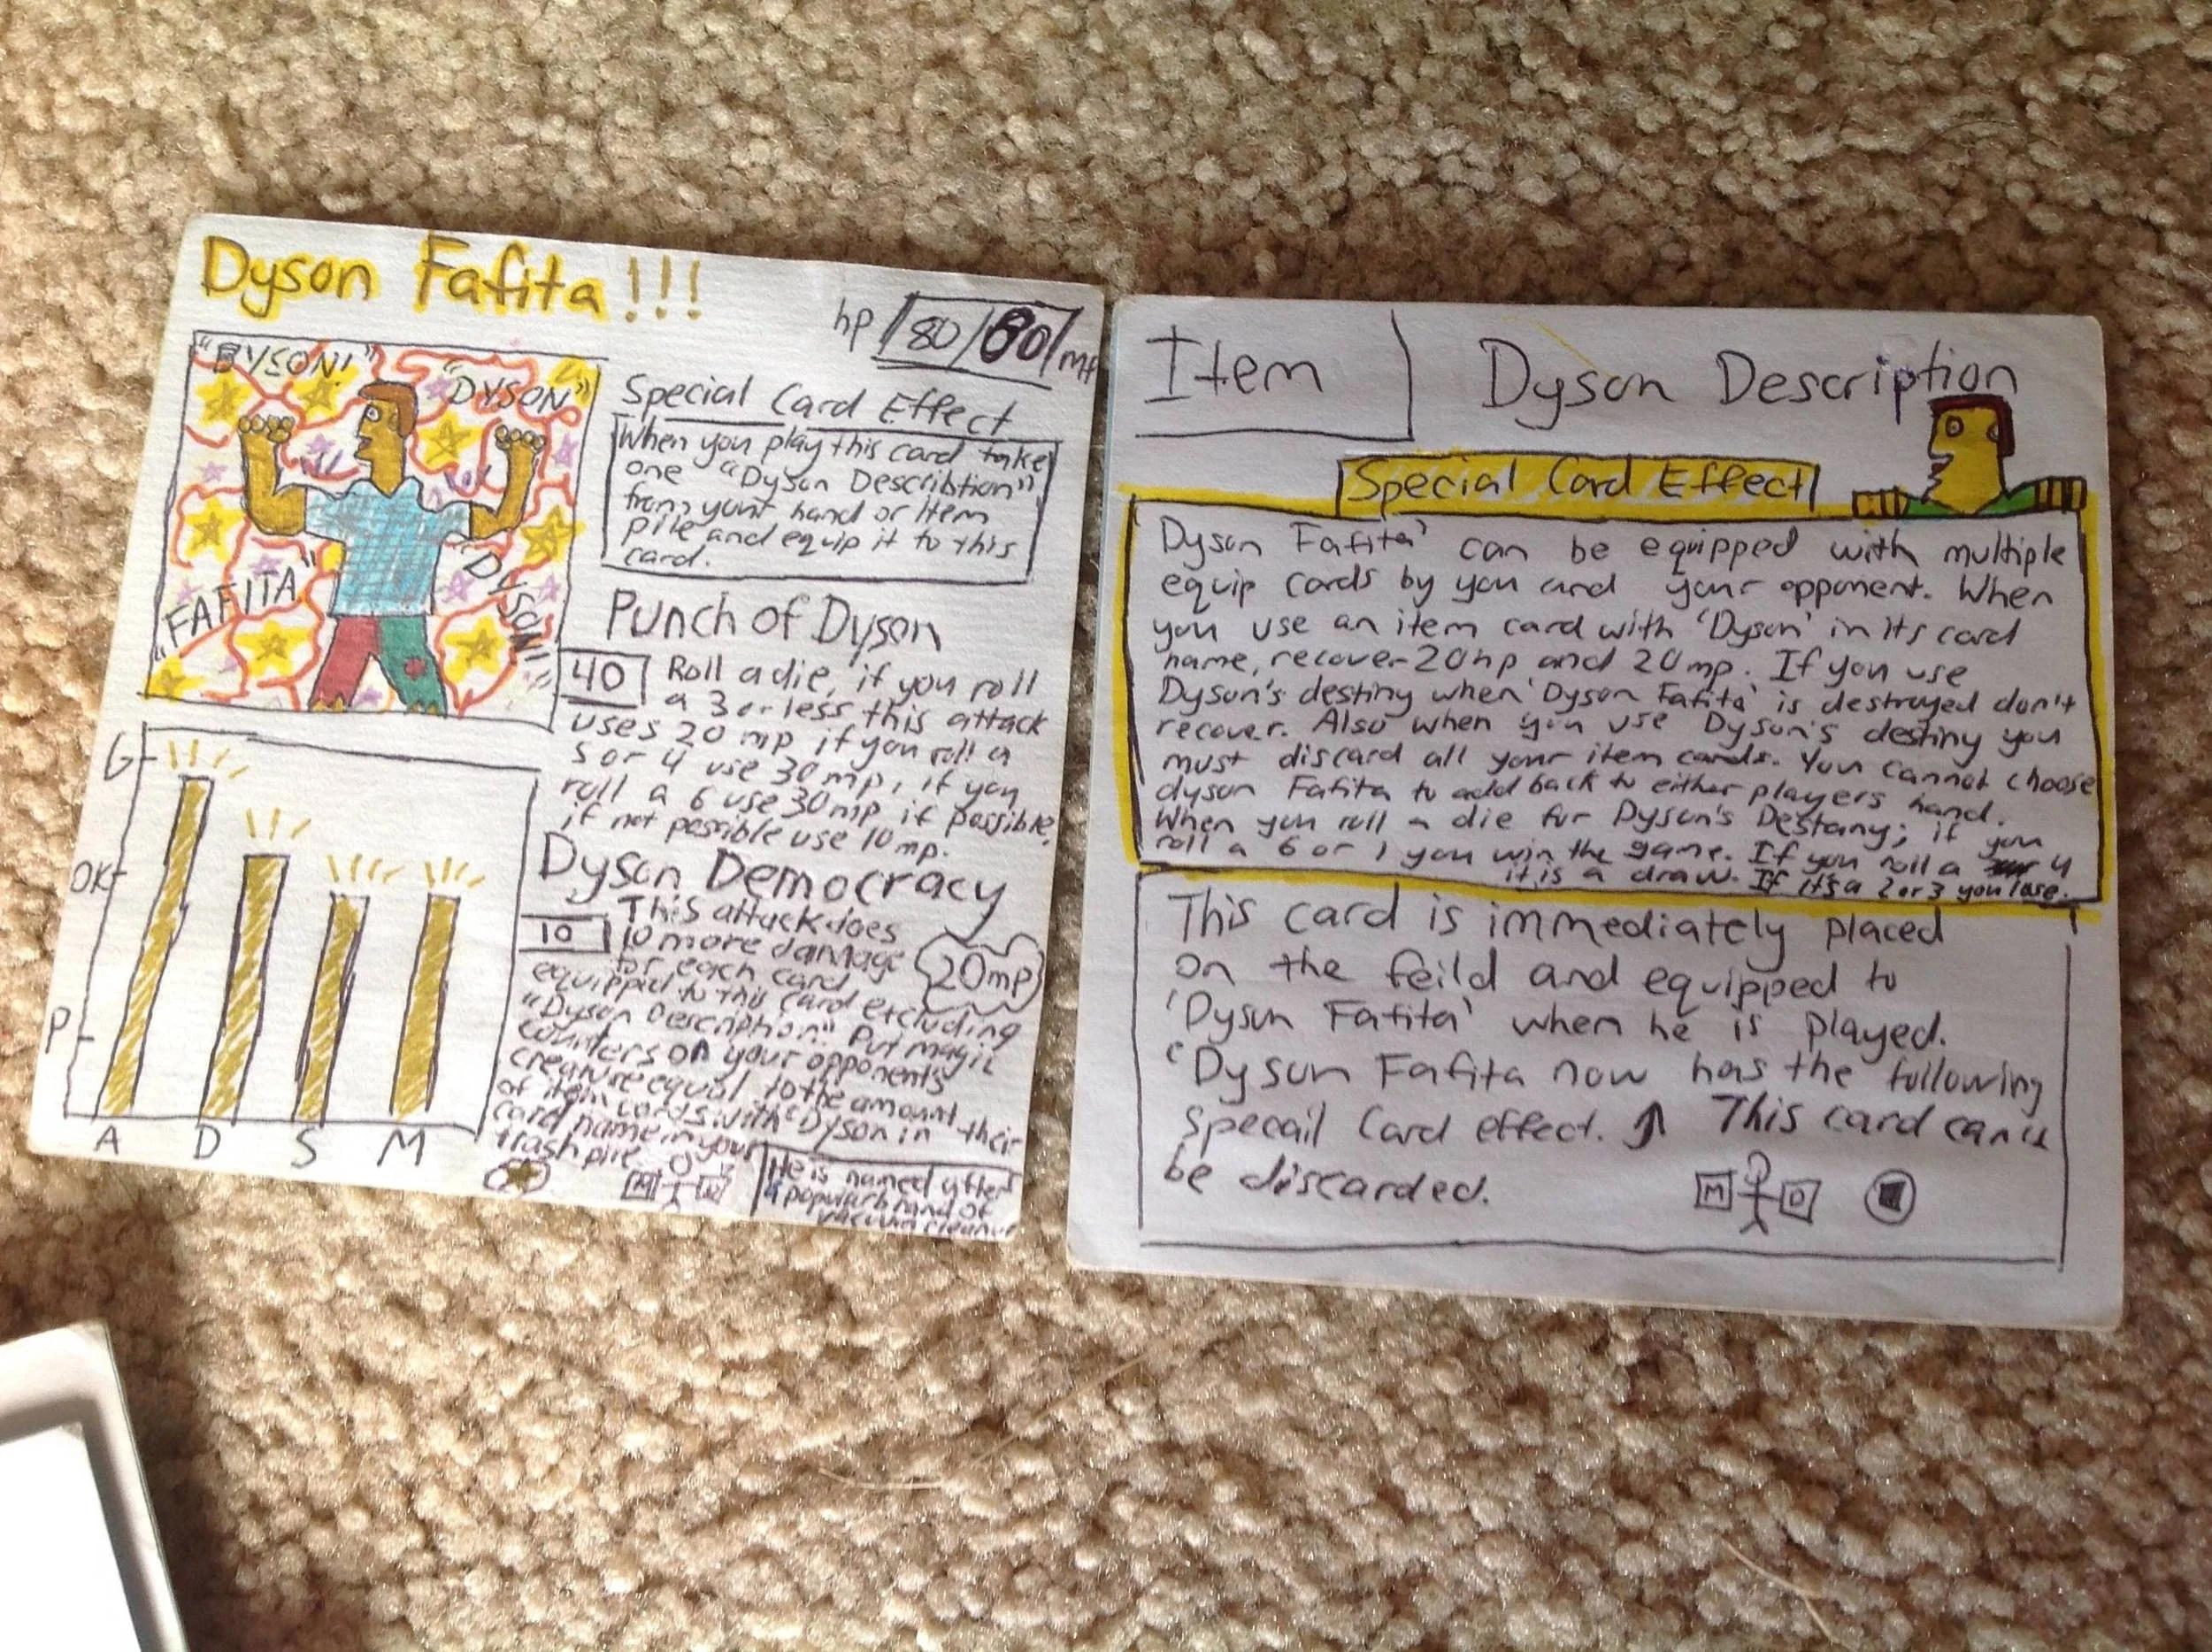 Dyson Fafita!!!
hp 80/80 mp
"DYSON!"
"DYSON"
"FAFITA"
"DYSON!"
Special Card Effect
When you play this card take
one "Dyson Describtion"
from your hand or Item
pile and equip it to this
card.
Punch of Dyson
40 Roll a die, if you roll
a 3 or less this attack
uses 20 mp if you roll a
5 or 4 use 30 mp, if you
roll a 6 use 30 mp if possible,
if not possible use 10 mp.
Dyson Democracy
10 This attack does
10 more damage
for each card
equippd to this card excluding
"Dyson Description". Put magic
counters on your opponents
creature equal to the amount
of item cards with "Dyson in their
card name in your
trash pile.
20mp
G
OK
P
A D S M
M D
He is named after
a popular brand of
vacuum cleaner
Item
Dyson Description
Special Card Effect
Dyson Fafita' can be equipped with multiple
equip cards by you and your opponent. When
you use an item card with 'Dyson' in its card
name, recover 20hp and 20mp. If you use
Dyson's destiny when 'Dyson Fafita' is destroyed don't
recover. Also when you use Dyson's destiny you
must discard all your item cards. You cannot choose
dyson Fafita to add back to either players hand.
When you roll a die for Dyson's Destany; if you
roll a 6 or 1 you win the game. If you roll a 4
it is a draw. If it's a 2 or 3 you lose.
This card is immediately placed
on the feild and equipped to
'Dyson Fafita' when he is played.
'Dyson Fafita now has the following
specail Card effect. ↑ This card can't
be discarded.
M D